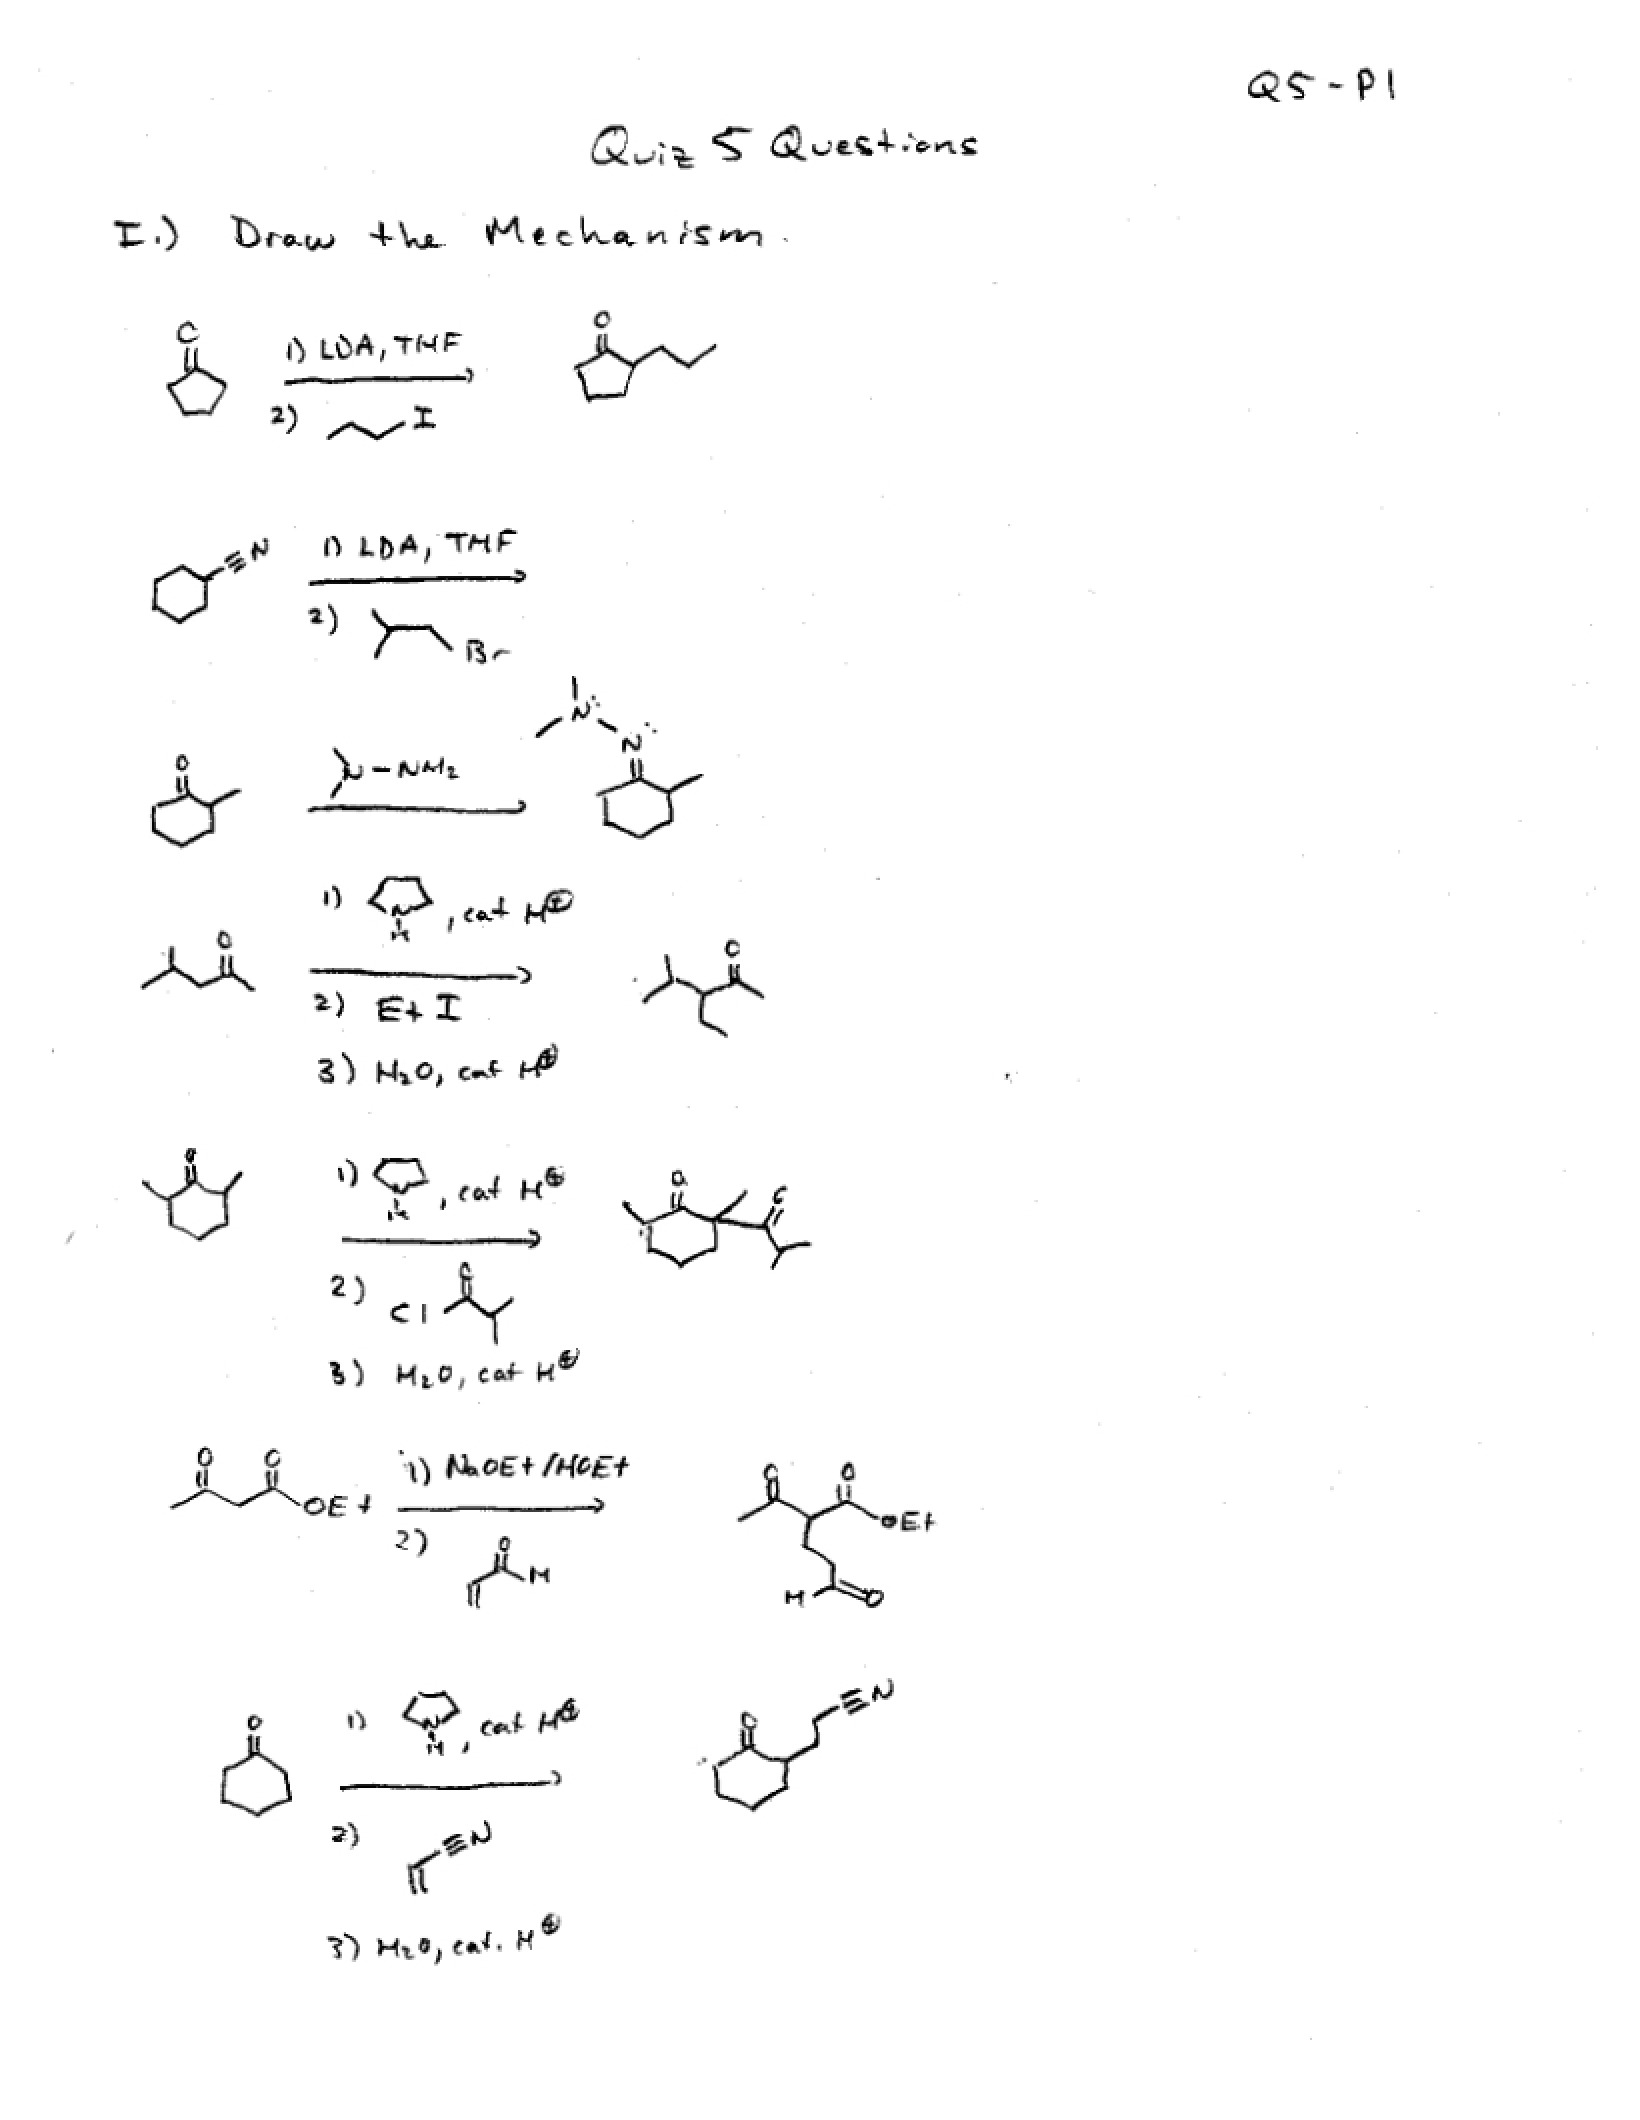 Q5-P1
Quiz 5 Questions
I.) Draw the Mechanism.
O
1) LDA, THF
2) I
O
N
1) LDA, THF
2) Br
O
N-NH2
N:
N:
O
1) N H, cat H⊕
2) Et I
3) H2O, cat H⊕
O
O
1) N H, cat H⊕
2) Cl O
3) H2O, cat H⊕
O O
O O OEt
1) NaOEt/HOEt
2) O H
O O OEt
H O
O
1) N H, cat H⊕
2) N
3) H2O, cat. H⊕
O N